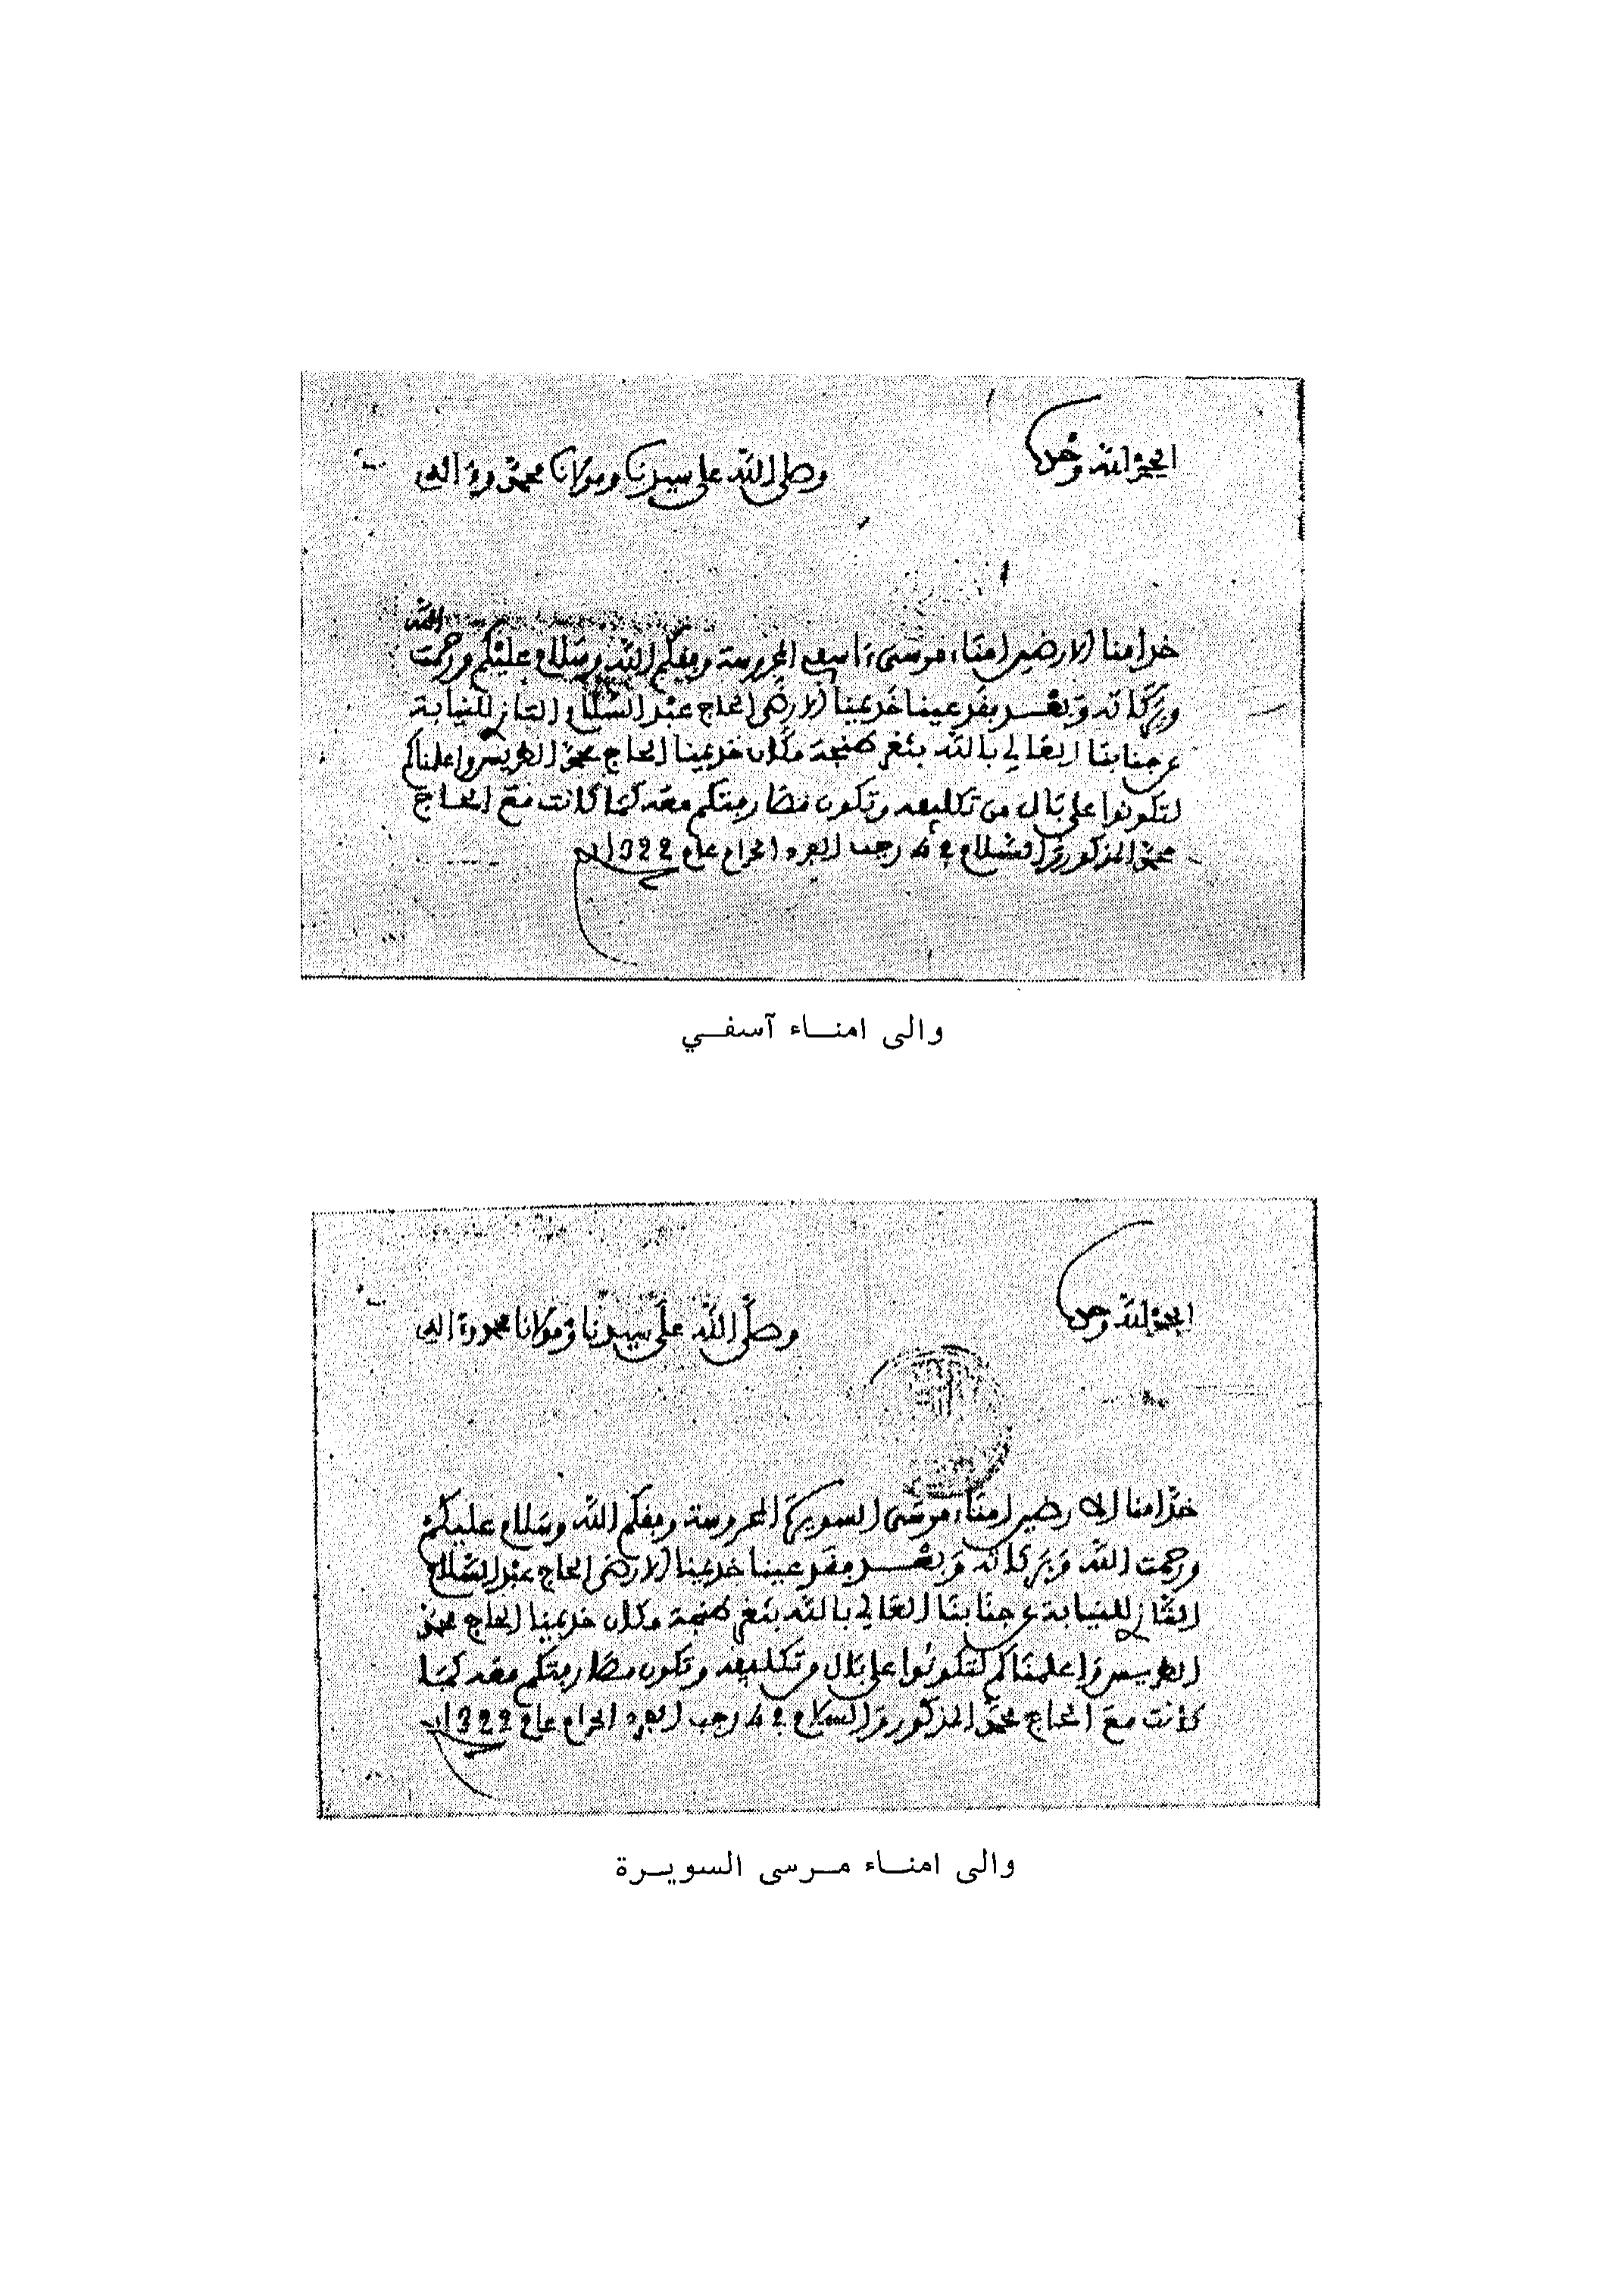 الحمد لله وحده
وصلى الله على سيدنا ومولانا محمد وءاله
خدامنا الارضين امناء مرسى ءاسفي المحروسة وفقكم الله وسلام عليكم ورحمت الله
وبركاته وبعد فقد عينا خديمنا الارضى الحاج عبد السلام التازي للنيابة
عن جنابنا العالي بالله بثغر طنجة مكان خديمنا الحاج محمد الطريس واعلمناكم
لتكونوا على بال من تكليفه وتكون مفاوضتكم معه كما كانت مع الحاج
محمد المذكور والسلام في 4 رجب الفرد الحرام عام 1322
والى امنــاء آسفــي
الحمد لله وحده
وصلى الله على سيدنا ومولانا محمد وءاله
خدامنا الارضين امناء مرسى السويرة المحروسة وفقكم الله وسلام عليكم
ورحمت الله وبركاته وبعد فقد عينا خديمنا الارضى الحاج عبد السلام
التازي للنيابة عن جنابنا العالي بالله بثغر طنجة مكان خديمنا الحاج محمد
الطريس واعلمناكم لتكونوا على بال من تكليفه وتكون معه كما
كانت مع الحاج محمد المذكور والسلام في 4 رجب الفرد الحرام عام 1322
والى امنــاء مــرسى السويــرة